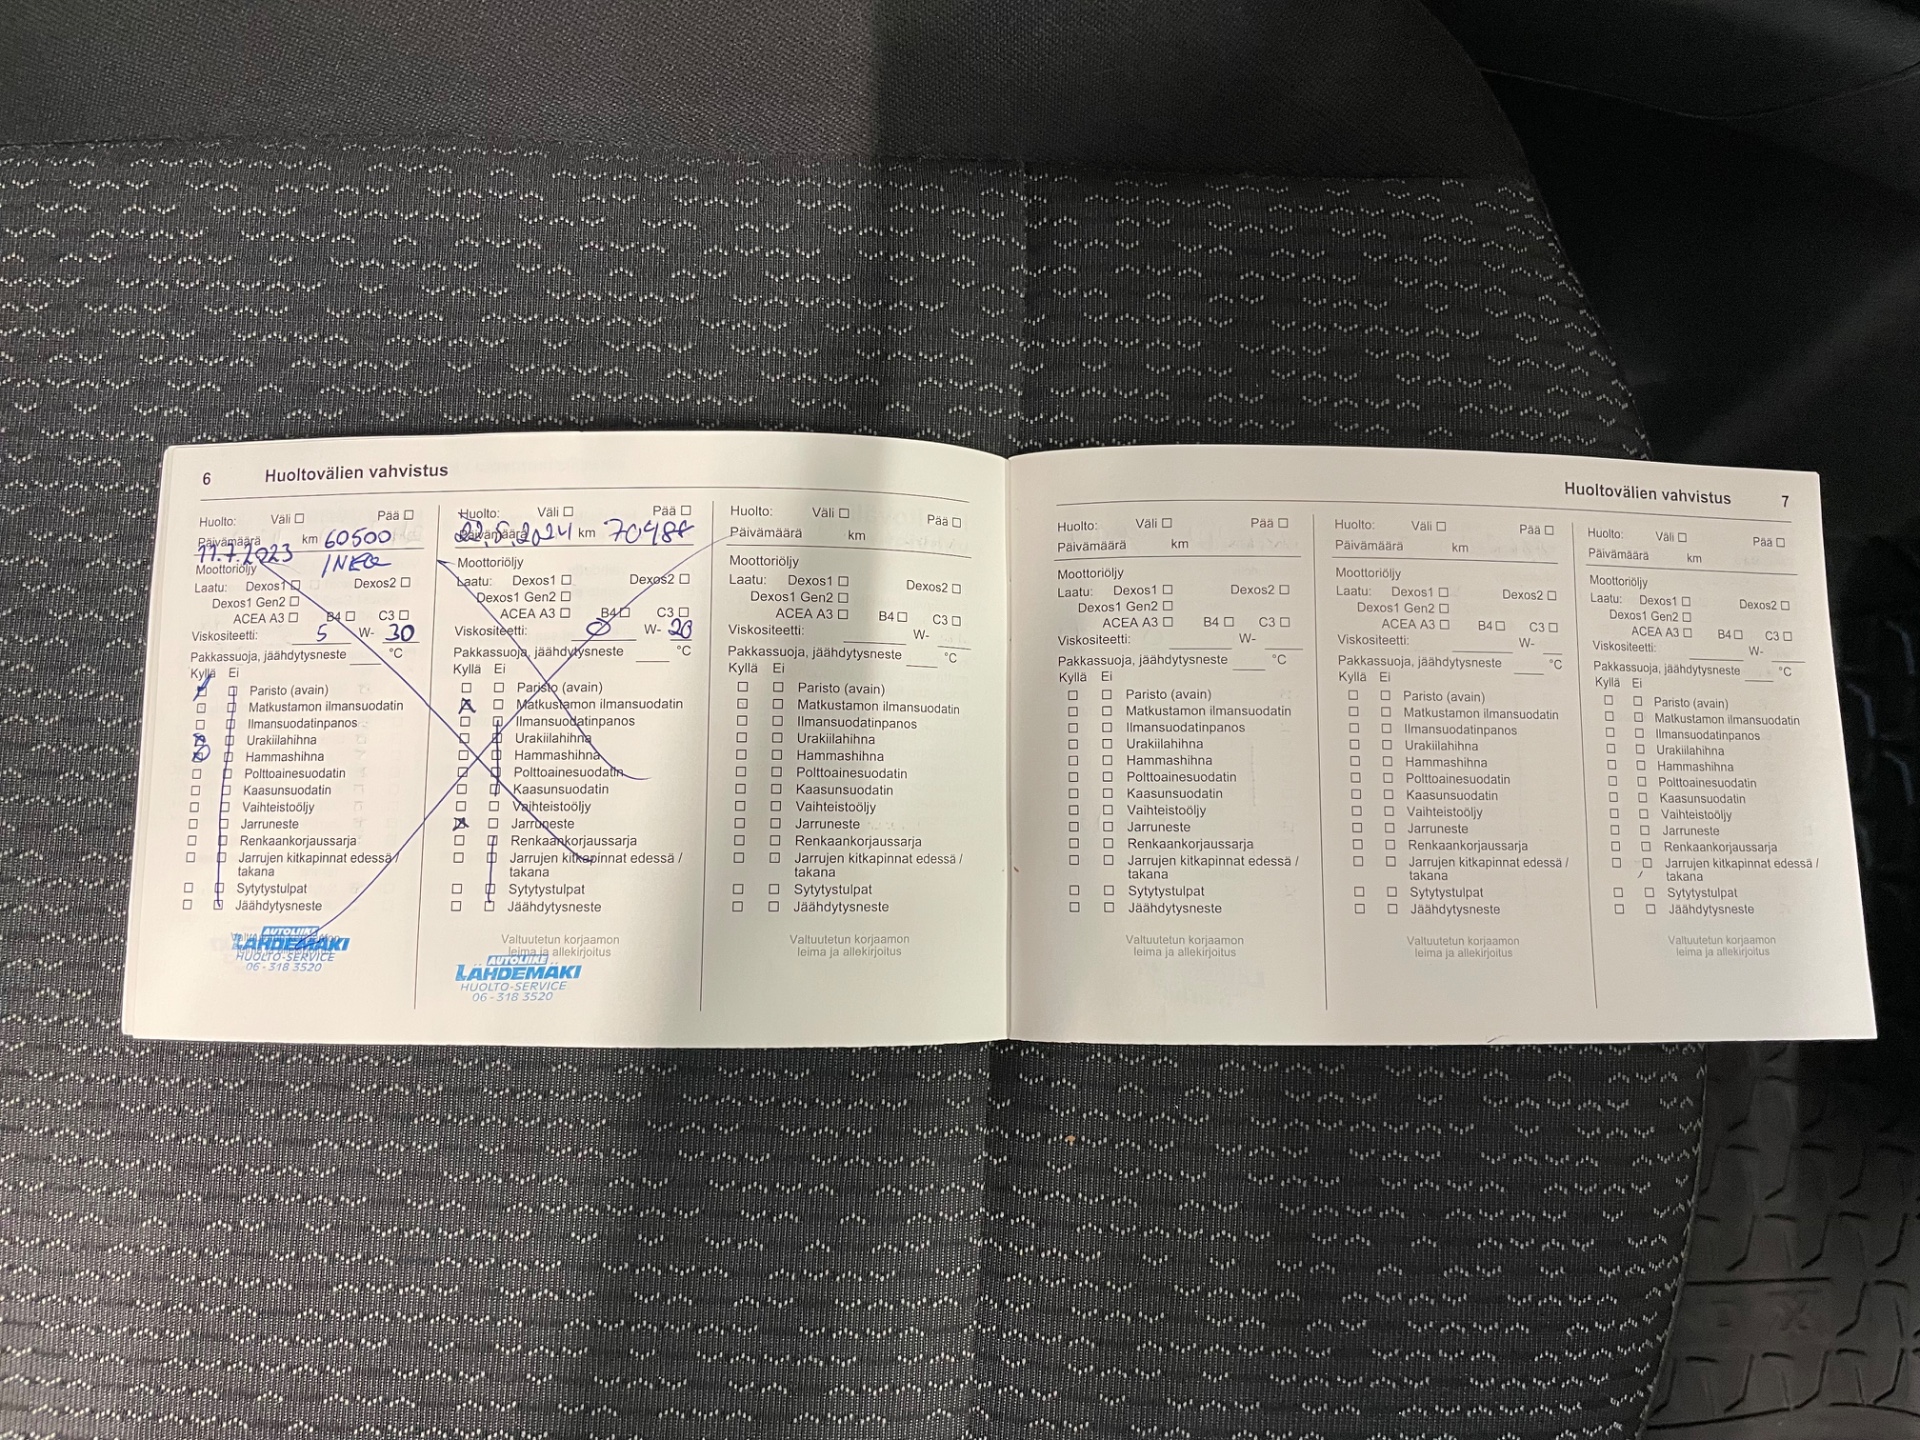 6 Huoltovälien vahvistus
Huolto: Väli Pää
Päivämäärä km 60500
11.7.2023
Moottoriöljy
Laatu: Dexos1 Dexos2
Dexos1 Gen2
ACEA A3 B4 C3
Viskositeetti: 5 W- 30
Pakkassuoja, jäähdytysneste °C
Kyllä Ei
Paristo (avain)
Matkustamon ilmansuodatin
Ilmansuodatinpanos
Urakiilahihna
Hammashihna
Polttoainesuodatin
Kaasunsuodatin
Vaihteistoöljy
Jarruneste
Renkaankorjaussarja
Jarrujen kitkapinnat edessä /
takana
Sytytystulpat
Jäähdytysneste
AUTOLIIKE
LÄHDEMÄKI
HUOLTO-SERVICE
06-318 3520
Huolto: Väli Pää
Päivämäärä 22.5.2024 km 70488
Moottoriöljy
Laatu: Dexos1 Dexos2
Dexos1 Gen2
ACEA A3 B4 C3
Viskositeetti: 0 W- 20
Pakkassuoja, jäähdytysneste °C
Kyllä Ei
Paristo (avain)
Matkustamon ilmansuodatin
Ilmansuodatinpanos
Urakiilahihna
Hammashihna
Polttoainesuodatin
Kaasunsuodatin
Vaihteistoöljy
Jarruneste
Renkaankorjaussarja
Jarrujen kitkapinnat edessä /
takana
Sytytystulpat
Jäähdytysneste
Valtuutetun korjaamon
leima ja allekirjoitus
AUTOLIIKE
LÄHDEMÄKI
HUOLTO-SERVICE
06-318 3520
Huolto: Väli Pää
Päivämäärä km
Moottoriöljy
Laatu: Dexos1 Dexos2
Dexos1 Gen2
ACEA A3 B4 C3
Viskositeetti: W-
Pakkassuoja, jäähdytysneste °C
Kyllä Ei
Paristo (avain)
Matkustamon ilmansuodatin
Ilmansuodatinpanos
Urakiilahihna
Hammashihna
Polttoainesuodatin
Kaasunsuodatin
Vaihteistoöljy
Jarruneste
Renkaankorjaussarja
Jarrujen kitkapinnat edessä /
takana
Sytytystulpat
Jäähdytysneste
Valtuutetun korjaamon
leima ja allekirjoitus
Huoltovälien vahvistus 7
Huolto: Väli Pää
Päivämäärä km
Moottoriöljy
Laatu: Dexos1 Dexos2
Dexos1 Gen2
ACEA A3 B4 C3
Viskositeetti: W-
Pakkassuoja, jäähdytysneste °C
Kyllä Ei
Paristo (avain)
Matkustamon ilmansuodatin
Ilmansuodatinpanos
Urakiilahihna
Hammashihna
Polttoainesuodatin
Kaasunsuodatin
Vaihteistoöljy
Jarruneste
Renkaankorjaussarja
Jarrujen kitkapinnat edessä /
takana
Sytytystulpat
Jäähdytysneste
Valtuutetun korjaamon
leima ja allekirjoitus
Huolto: Väli Pää
Päivämäärä km
Moottoriöljy
Laatu: Dexos1 Dexos2
Dexos1 Gen2
ACEA A3 B4 C3
Viskositeetti: W-
Pakkassuoja, jäähdytysneste °C
Kyllä Ei
Paristo (avain)
Matkustamon ilmansuodatin
Ilmansuodatinpanos
Urakiilahihna
Hammashihna
Polttoainesuodatin
Kaasunsuodatin
Vaihteistoöljy
Jarruneste
Renkaankorjaussarja
Jarrujen kitkapinnat edessä /
takana
Sytytystulpat
Jäähdytysneste
Valtuutetun korjaamon
leima ja allekirjoitus
Huolto: Väli Pää
Päivämäärä km
Moottoriöljy
Laatu: Dexos1 Dexos2
Dexos1 Gen2
ACEA A3 B4 C3
Viskositeetti: W-
Pakkassuoja, jäähdytysneste °C
Kyllä Ei
Paristo (avain)
Matkustamon ilmansuodatin
Ilmansuodatinpanos
Urakiilahihna
Hammashihna
Polttoainesuodatin
Kaasunsuodatin
Vaihteistoöljy
Jarruneste
Renkaankorjaussarja
Jarrujen kitkapinnat edessä /
takana
Sytytystulpat
Jäähdytysneste
Valtuutetun korjaamon
leima ja allekirjoitus